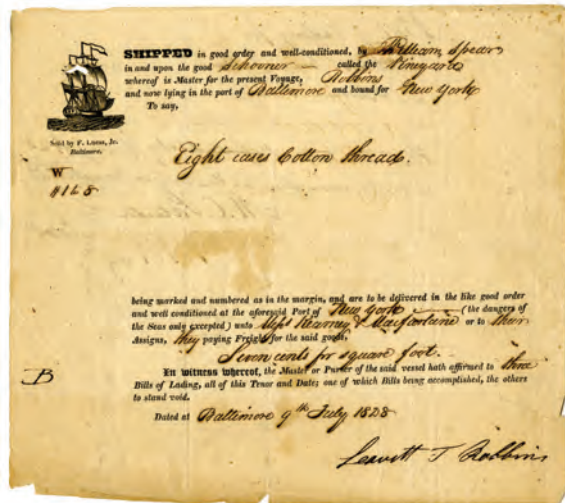 SHIPPED in good order and well-conditioned, by William Spear
in and upon the good Schooner called the Vineyard
whereof is Master for the present Voyage, Robbins
and now lying in the port of Baltimore and bound for New York
To say,
Sold by F. Lucas, Jr.
Baltimore.
Eight cases Cotton thread.
W
being marked and numbered as in the margin, and are to be delivered in the like good order
and well conditioned at the aforesaid Port of New York (the dangers of
the Seas only excepted) unto Messs Kearney & Macfarlane or to their
Assigns, they paying Freight for the said goods,
Seven cents pr square foot.
B
In witness whereof, the Master or Purser of the said vessel hath affirmed to three
Bills of Lading, all of this Tenor and Date; one of which Bills being accomplished, the others
to stand void.
Dated at Baltimore 9th July 1828
Leavitt T Robbins